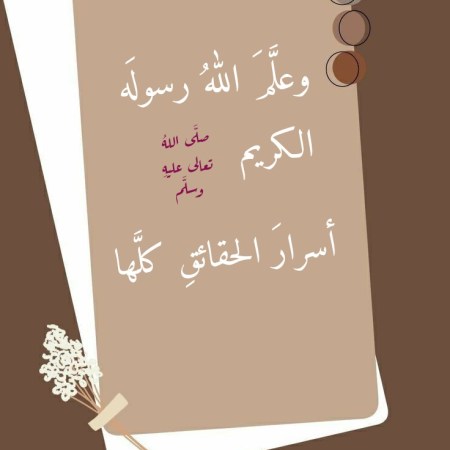 وعلَّمَ اللهُ رسولَه
الكريم
صلَّى اللهُ
تعالى عليهِ
وسلَّم
أسرارَ الحقائقِ كلَّها